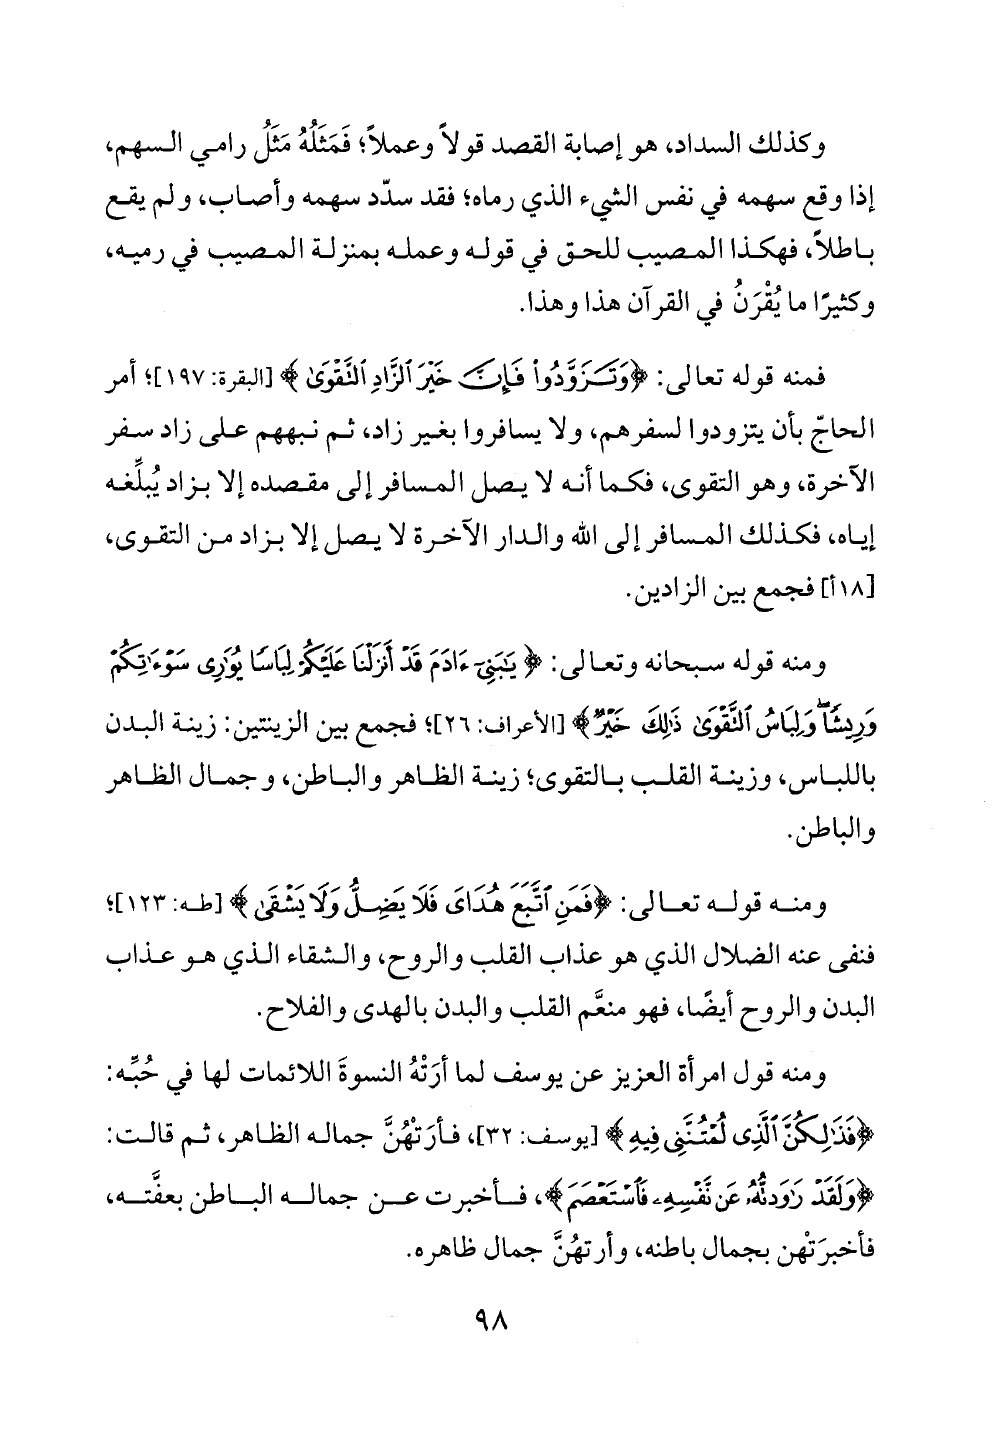 وكذلك السداد، هو إصابة القصد قولاً وعملاً؛ فَمَثَلُهُ مَثَلُ رامي السهم،
إذا وقع سهمه في نفس الشيء الذي رماه؛ فقد سدّد سهمه وأصاب، ولم يقع
باطلاً، فهكذا المصيب للحق في قوله وعمله بمنزلة المصيب في رميه،
وكثيرًا ما يُقْرَنُ في القرآن هذا وهذا.
فمنه قوله تعالى: ﴿وَتَزَوَّدُوا۟ فَإِنَّ خَيْرَ ٱلزَّادِ ٱلتَّقْوَىٰ﴾ [البقرة: ١٩٧]؛ أمر
الحاجّ بأن يتزودوا لسفرهم، ولا يسافروا بغير زاد، ثم نبههم على زاد سفر
الآخرة، وهو التقوى، فكما أنه لا يصل المسافر إلى مقصده إلا بزاد يُبلِّغه
إياه، فكذلك المسافر إلى الله والدار الآخرة لا يصل إلا بزاد من التقوى،
[١٨أ] فجمع بين الزادين.
ومنه قوله سبحانه وتعالى: ﴿يَٰبَنِىٓ ءَادَمَ قَدْ أَنزَلْنَا عَلَيْكُمْ لِبَاسًا يُوَٰرِى سَوْءَٰتِكُمْ
وَرِيشًا ۖ وَلِبَاسُ ٱلتَّقْوَىٰ ذَٰلِكَ خَيْرٌ﴾ [الأعراف: ٢٦]؛ فجمع بين الزينتين: زينة البدن
باللباس، وزينة القلب بالتقوى؛ زينة الظاهر والباطن، وجمال الظاهر
والباطن.
ومنه قوله تعالى: ﴿فَمَنِ ٱتَّبَعَ هُدَاىَ فَلَا يَضِلُّ وَلَا يَشْقَىٰ﴾ [طه: ١٢٣]؛
فنفى عنه الضلال الذي هو عذاب القلب والروح، والشقاء الذي هو عذاب
البدن والروح أيضًا، فهو منعَّم القلب والبدن بالهدى والفلاح.
ومنه قول امرأة العزيز عن يوسف لما أرَتْهُ النسوةَ اللائمات لها في حُبِّه:
﴿فَذَٰلِكُنَّ ٱلَّذِى لُمْتُنَّنِى فِيهِ﴾ [يوسف: ٣٢]، فأرَتْهُنَّ جماله الظاهر، ثم قالت:
﴿وَلَقَدْ رَٰوَدتُّهُۥ عَن نَّفْسِهِۦ فَٱسْتَعْصَمَ﴾، فأخبرت عن جماله الباطن بعفَّته،
فأخبرَتْهن بجمال باطنه، وأرتهُنَّ جمال ظاهره.
٩٨